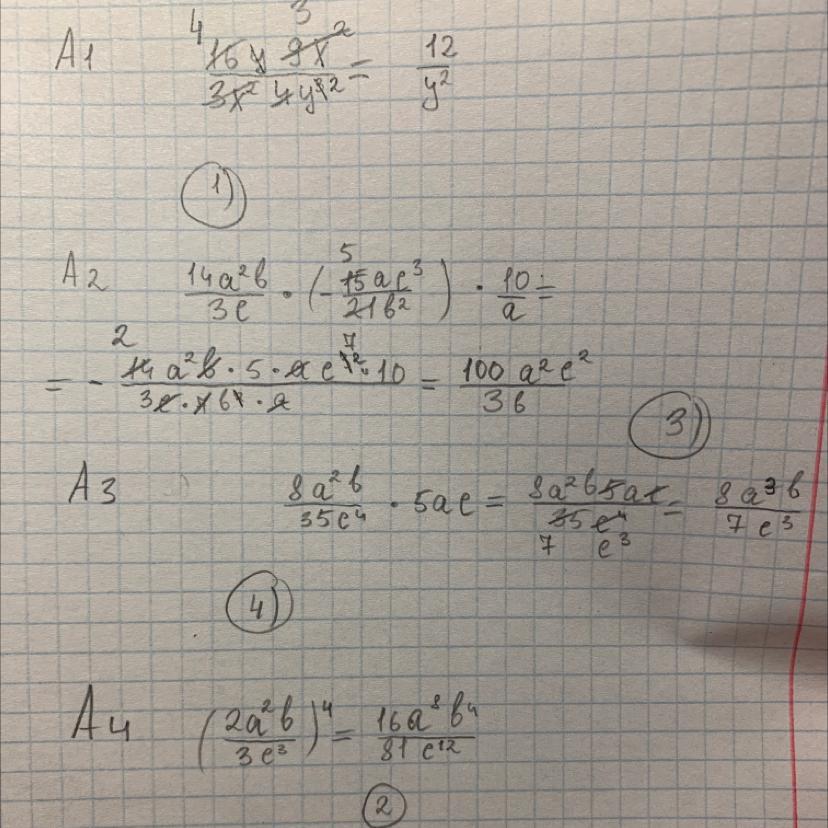 A1 16y 9x² / 3x² 4y³ = 12/y²
4 3 2
1)
A2 14a²b/3c · (-15ac³/21b²) · 10/a =
5 7
= - 14a²b · 5 · a c³² · 10 / 3c · 7b² · a = 100a²c²/3b
2
3)
A3 8a²b/35c⁴ · 5ac = 8a²b5ac/35c⁴ = 8a³b/7c³
7 c³
4)
A4 (2a²b/3c³)⁴ = 16a⁸b⁴/81c¹²
2